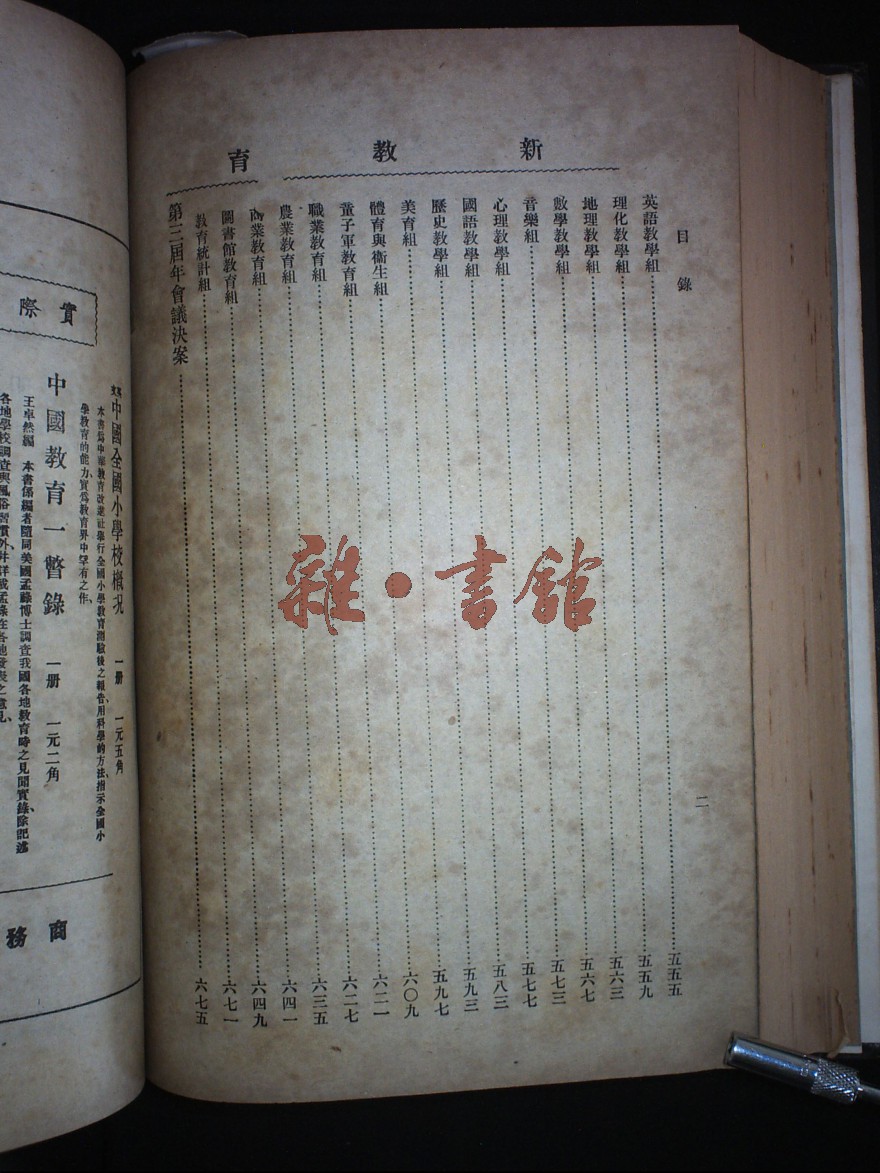 新教育
目錄
二
英語教學組 五五五
理化教學組 五五九
地理教學組 五六三
數學教學組 五六七
音樂組 五七三
心理教學組 五七七
國語教學組 五八三
歷史教學組 五九三
美育組 五九七
體育與衞生組 六〇九
童子軍教育組 六二一
職業教育組 六二七
農業教育組 六三五
商業教育組 六四一
圖書館教育組 六四九
教育統計組 六七一
第三屆年會議決案 六七五
雜·書館
實際
中國全國小學校概況 一册 一元五角
本書為中華教育改進社舉行全國小學教育測驗後之報告用科學的方法、指示全國小
學教育的能力、實為教育界中罕有之作、
中國教育一瞥錄 一册 一元二角
王卓然編 本書係編者隨同美國孟祿博士調查我國各地教育時之見聞實錄、除記述
各地學校調查與風俗習慣外、并詳載孟祿在各地發表之意見、
商務